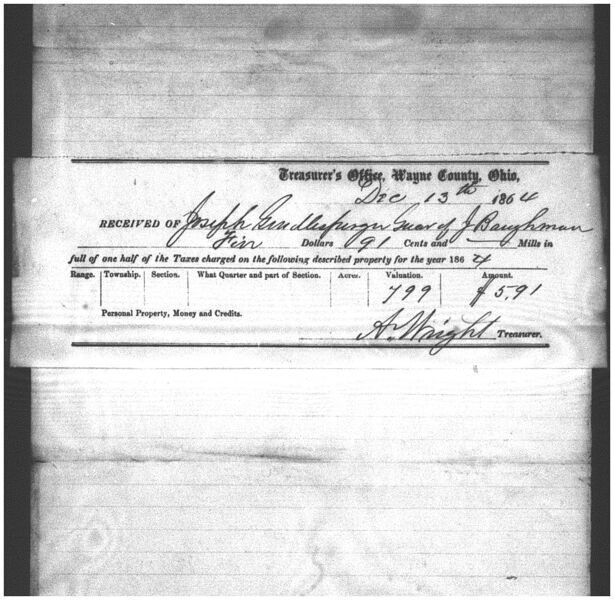 Treasurer's Office, Wayne County, Ohio,
Dec 13th 1864
RECEIVED OF Joseph Gindlesperger Guar of J Baughman
Five Dollars 91 Cents and — Mills in
full of one half of the Taxes charged on the following described property for the year 1864
Range. Township. Section. What Quarter and part of Section. Acres. Valuation. Amount.
799 $5.91
Personal Property, Money and Credits.
A. Wright Treasurer.